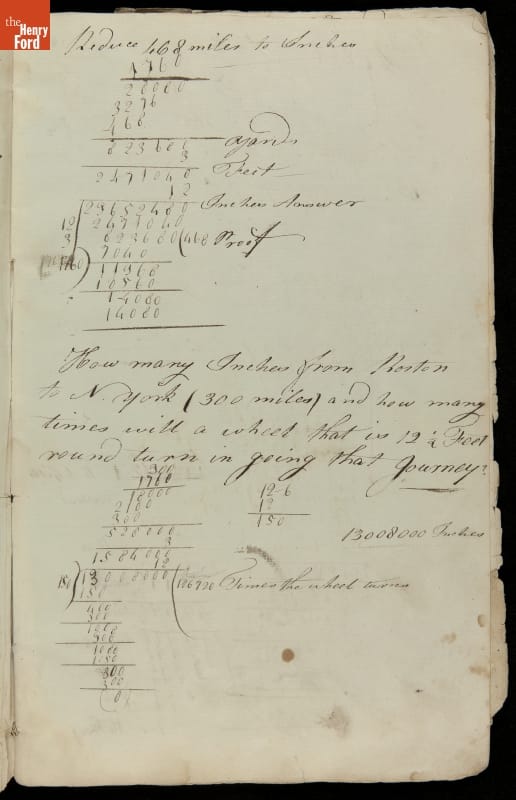 the
Henry
Ford
Reduce 468 miles to Inches
1760
28080
3276
468
823680 yards
3
2471040 Feet
12
29652480 Inches Answer
12 2471040
3 823680 (468 Proof
1760) 7040
11968
10560
14080
14080
How many Inches from Boston
to N. York (300 miles) and how many
times will a wheel that is 12 1/2 Feet
round turn in going that Journey
300
1760
18000
2100
300
528000
3
1584000
12
12-6
12
150
13008000 Inches
150) 13008000 (126720 Times the wheel turns
150
400
300
1000
900
1000
1050
300
300
(0)